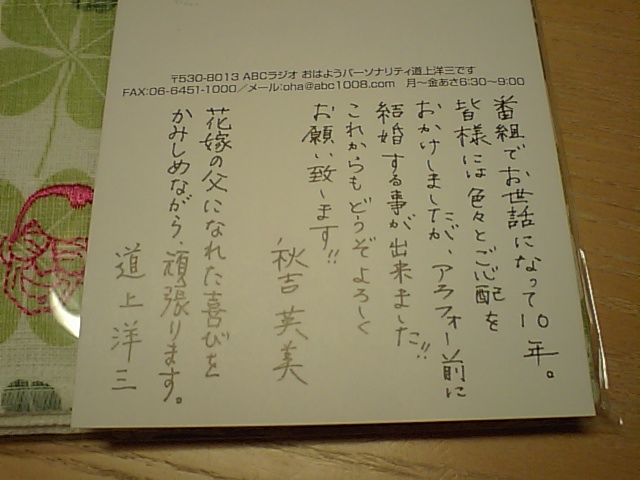 〒530-8013 ABCラジオ おはようパーソナリティ道上洋三です
FAX:06-6451-1000／メール:oha@abc1008.com 月〜金あさ6:30〜9:00
番組でお世話になって10年。
皆様には色々とご心配を
おかけしましたが、アラフォー前に
結婚する事が出来ました!!
これからもどうぞよろしく
お願い致します!!
秋吉英美
花嫁の父になれた喜びを
かみしめながら、頑張ります。
道上洋三